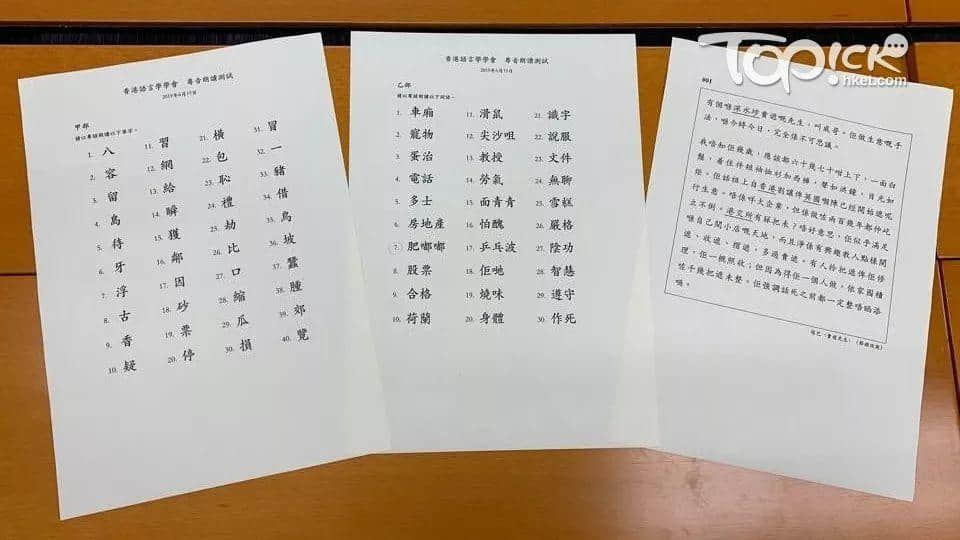 TOPICK
hket.com
香港語言學學會 粵音朗讀測試
2019年6月15日
甲部
請以粵語朗讀以下單字。
1. 八
2. 容
3. 留
4. 島
5. 待
6. 牙
7. 浮
8. 古
9. 香
10. 疑
11. 習
12. 網
13. 給
14. 瞬
15. 獲
16. 鄰
17. 因
18. 砂
19. 票
20. 停
21. 橫
22. 包
23. 恥
24. 禮
25. 劫
26. 比
27. 口
28. 縮
29. 瓜
30. 損
31. 冒
32. 一
33. 豬
34. 借
35. 鳥
36. 坡
37. 蠶
38. 腫
39. 郊
40. 覽
香港語言學學會 粵音朗讀測試
2019年6月15日
乙部
請以粵語朗讀以下詞語。
1. 車廂
2. 寵物
3. 蛋治
4. 電話
5. 多士
6. 房地產
7. 肥嘟嘟
8. 股票
9. 合格
10. 荷蘭
11. 滑鼠
12. 尖沙咀
13. 教授
14. 勞氣
15. 面青青
16. 怕醜
17. 乒乓波
18. 佢哋
19. 燒味
20. 身體
21. 識字
22. 說服
23. 文件
24. 無聊
25. 雪糕
26. 嚴格
27. 陰功
28. 智慧
29. 遵守
30. 作死
001
有個喺深水埗賣遮嘅先生，叫威哥。佢做生意嘅手
法，喺今時今日，完全係不可思議。
我唔知佢幾歲，應該都六十幾七十咁上下，一面白
鬚，着住件短袖恤衫加西褲，聲如洪鐘，目光如
炬。佢話祖上自香港割讓俾英國嗰陣已經開始遮呢
行生意。唔係咩大企業，但係做咗兩百幾年都仲屹
立不倒。港交所有冧把未？唔好意思，佢似乎滿足
喺自己間小店嘅天地，而且淨係有興趣教人點樣開
遮、收遮、揸遮，多過賣遮。有人拎把遮俾佢修
理，佢一概照收；但因為得佢一個人做，依家囤積
咗千幾把遮未整。佢強調話死之前都一定整唔晒添
喎。
〈賣遮先生〉（節錄改寫）